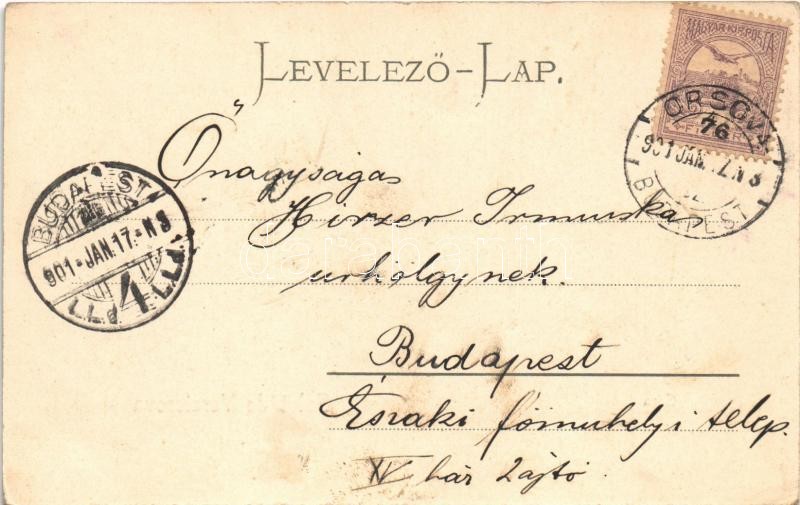 LEVELEZŐ-LAP.
MAGYAR KIR. POSTA
ORSOVA
76
901 JAN. 17. N 8
BUDAPEST
BUDAPEST
901-JAN.17.-N8
4
Őnagysága
Hirzer Irmuska
urhölgynek.
Budapest
Északi főmuhelyi telep.
XV ház 2 ajtó.